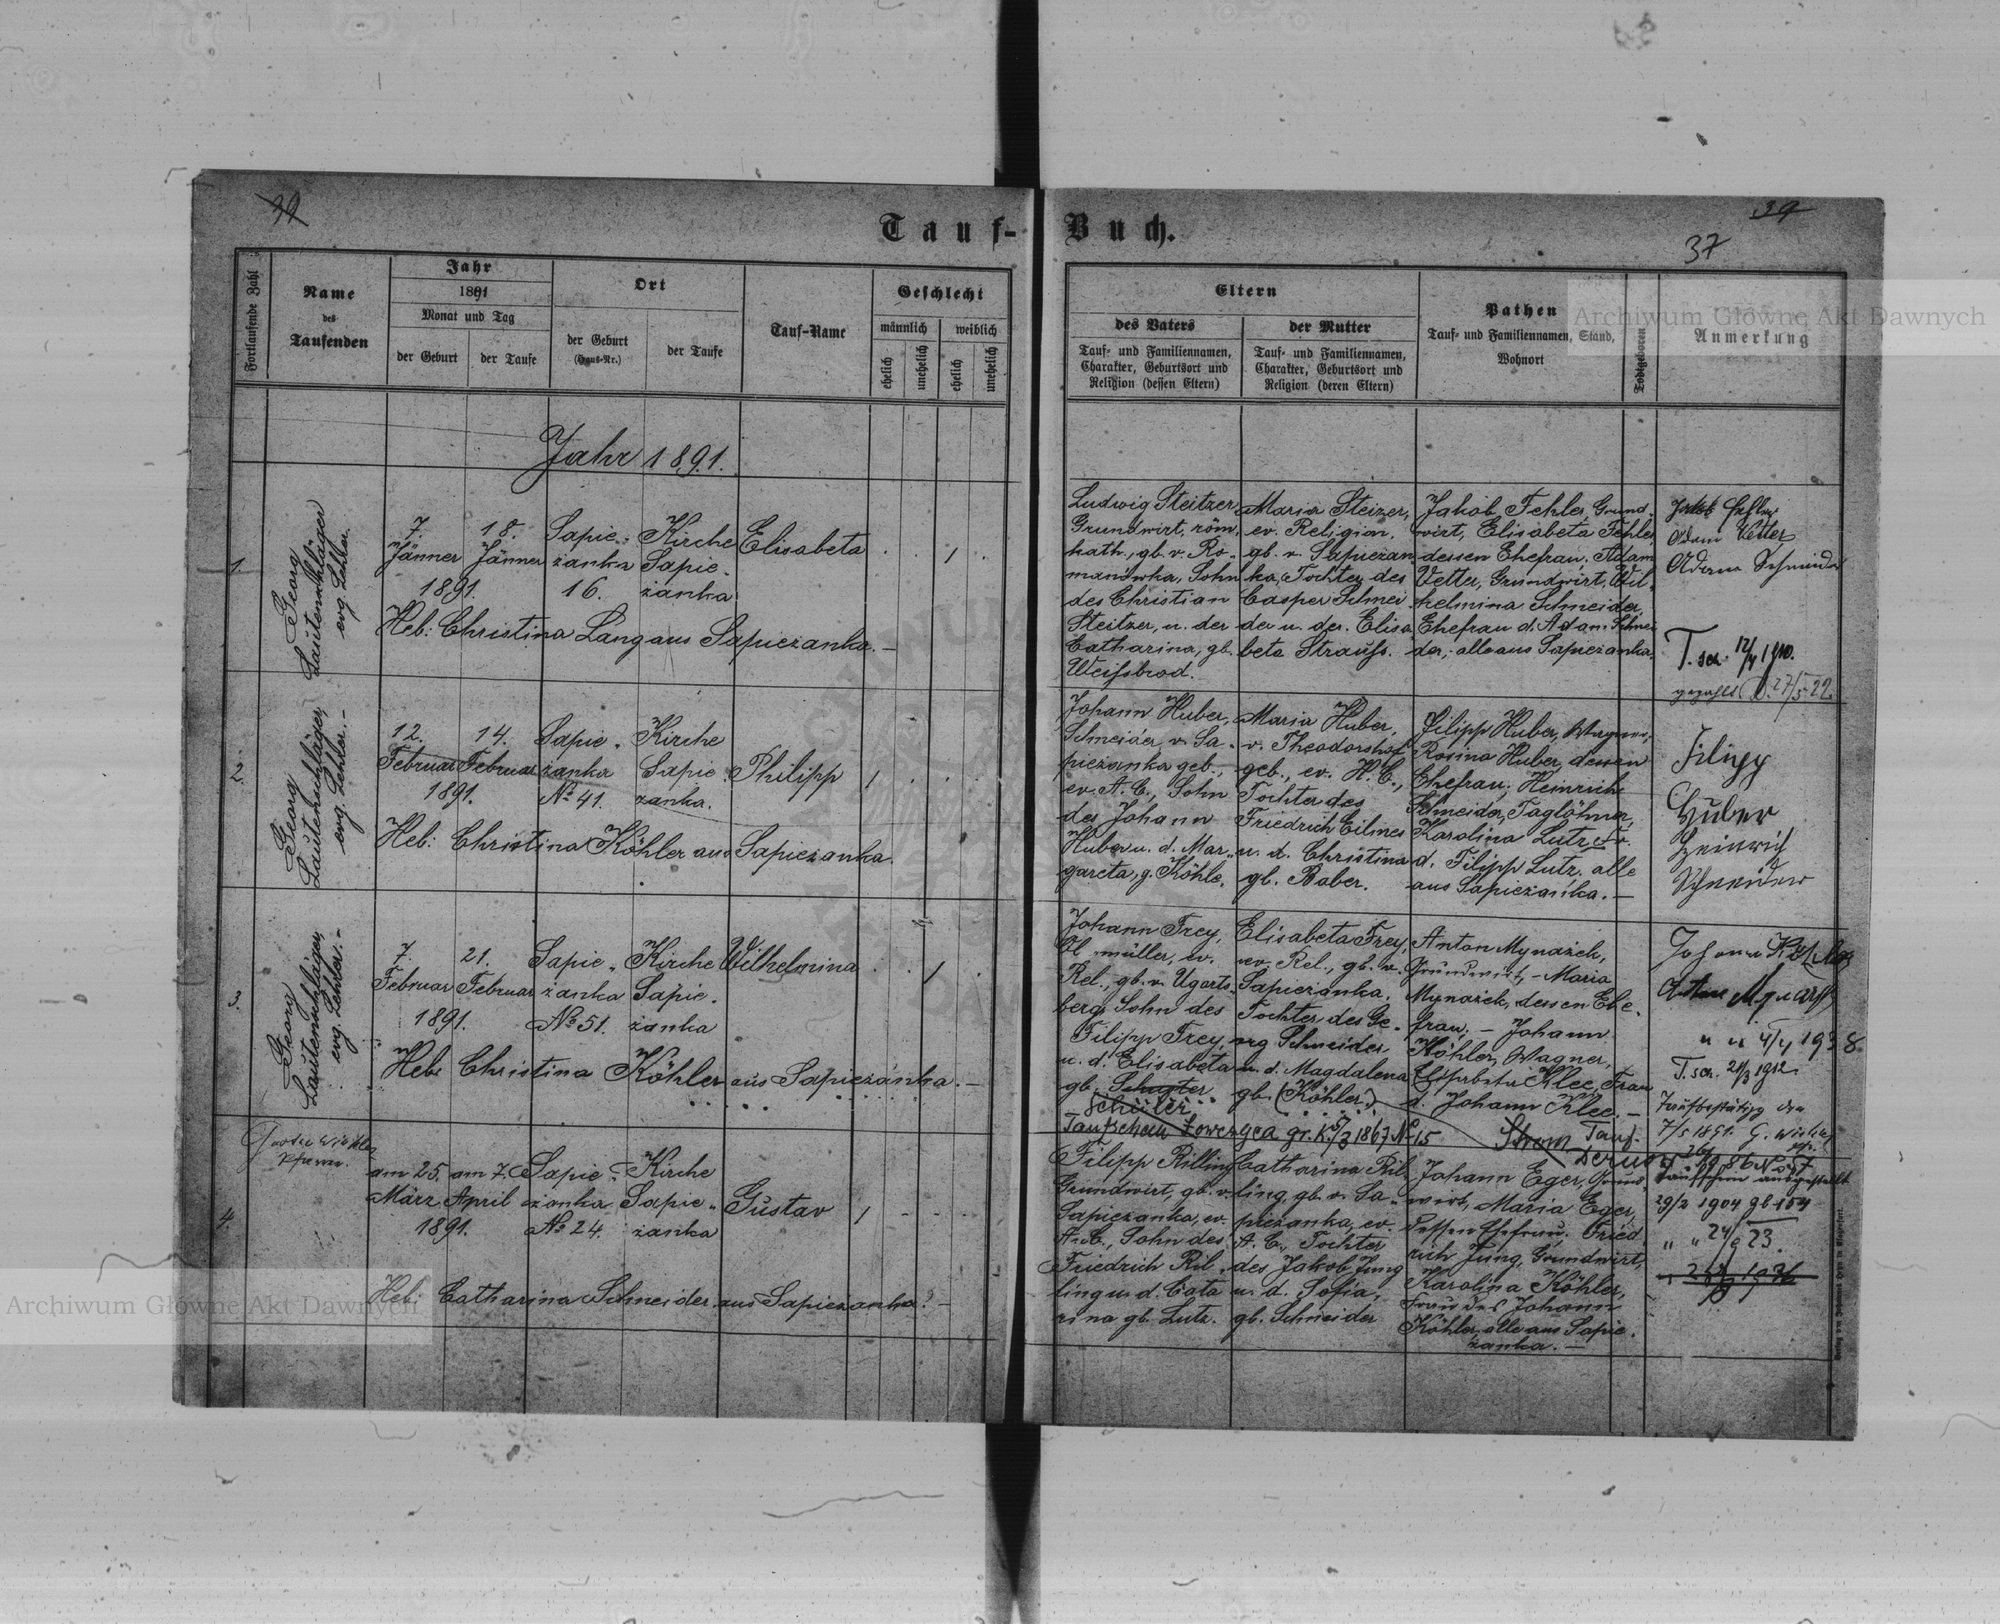 39
Tauf-
Fortlaufende Zahl
Name
des
Taufenden
Jahr
1891
Monat und Tag
der Geburt
der Taufe
Ort
der Geburt
(Haus-Nr.)
der Taufe
Tauf-Name
Geschlecht
männlich
weiblich
ehelich
unehelich
ehelich
unehelich
Jahr 1891.
1.
Georg
Lautenschläger
evg. Lehrer
7.
Jänner
18.
Jänner
1891.
Sapie-
żanka
16.
Kirche
Sapie-
żanka
Elisabeta
1
Heb: Christina Lang aus Sapieżanka. —
2.
Georg
Lautenschläger,
evg. Lehrer. —
12.
Februar
14.
Februar
1891.
Sapie-
żanka
No 41.
Kirche
Sapie
żanka.
Philipp
1
Heb: Christina Köhler aus Sapieżanka.
3.
Georg
Lautenschläger,
evg. Lehrer. —
7.
Februar
21.
Februar
1891.
Sapie-
żanka
No 51.
Kirche
Sapie-
żanka
Wilhelmina
1
Heb: Christina Köhler aus Sapieżanka. —
4.
Pfarrer.
am 25.
März
am 7.
April
1891.
Sapie-
żanka
No 24.
Kirche
Sapie-
żanka
Gustav
1
Heb: Catharina Schneider aus Sapieżanka. —
Archiwum Główne Akt Dawnych
Buch.
39
37
Archiwum Główne Akt Dawnych
Eltern
des Vaters
Tauf- und Familiennamen,
Charakter, Geburtsort und
Religion (dessen Eltern)
der Mutter
Tauf- und Familiennamen,
Charakter, Geburtsort und
Religion (deren Eltern)
Pathen
Tauf- und Familiennamen, Stand,
Wohnort
Todtgeboren
Anmerkung
Ludwig Steitzer
Grundwirt, röm.
kath., gb. v. Ro-
manówka, Sohn
des Christian
Steitzer, u. der
Catharina, gb.
Weißbrod.
Maria Steizer,
ev. Religion,
gb. v. Sapiezan
ka, Tochter des
Casper Schnei
der u. der. Elisa
beta Strauß.
Jakob Fehler, Grund-
wirt, Elisabeta Fehler
dessen Ehefrau. Adam
Vetter, Grundwirt, Wil-
helmina Schneider,
Ehefrau d. Adam Schnei
der; alle aus Sapieżanka.
Jakob Fehler
Adam Vetter
Adam Schneider
T. sch. 12/4 1910.
27/5 22.
Johann Huber,
Schneider, v. Sa-
pieżanka geb.,
ev. A. C., Sohn
des Johann
Huber u. d. Mar-
gareta, g. Köhle.
Maria Huber,
v. Theodorshof
geb., ev. H. C.,
Tochter des
Friedrich Eilmes
u. d. Christina
gb. Baber.
Filipp Huber, Wagner,
Rosina Huber, dessen
Ehefrau; Heinrich
Schneider, Taglöhner,
Karolina Lutz Fr.
d. Filipp Lutz. alle
aus Sapieżanka. —
Filipp
Huber
Heinrich
Schneider
Johann Frey,
Ölmüller, ev.
Rel., gb. v. Ugarts-
berg, Sohn des
Filipp Frey,
u. d. Elisabeta
gb. Schuster
Schüler
Elisabeta Frey,
ev. Rel., gb. v.
Sapieżanka,
Tochter des Ge-
org Schneider
u. d. Magdalena
gb. (Köhler.)
Anton Mynażek,
Grundwirt, — Maria
Mynażek, dessen Ehe-
frau. — Johann
Köhler, Wagner,
Elisabeta Klee, Frau
d. Johann Klee. —
T. sch. 21/3 1912.
7/5 1891.
Filipp Rilling
Grundwirt, gb. v.
Sapieżanka, ev.
A. C., Sohn des
Friedrich Ril-
ling u. d. Cata
rina gb. Lutz.
Catharina Ril-
ling, gb. v. Sa-
pieżanka, ev.
A. C., Tochter
des Jakob Jung
u. d. Sofia,
gb. Schneider
Johann Eger, Grund-
wirt, Maria Eger,
dessen Ehefrau. Fried
rich Jung, Grundwirt,
Karolina Köhler,
Frau des Johann
Köhler, alle aus Sapie-
żanka. —
Taufschein ausgestellt
29/2 1904